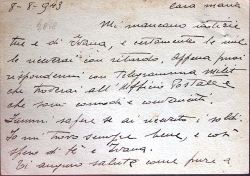 8-8-943 Cara Maria
Mi mancano notizie
tue e di Ivana, e certamente le mie
le riceverai con ritardo, appena puoi
rispondermi con Telegramma
che troverai all'Ufficio Postale e
che sono comodi e
Fammi sapere se ai ricevuto i soldi
Io mi trovo sempre bene, e così
spero di te e Ivana.
Ti auguro salute come pure a